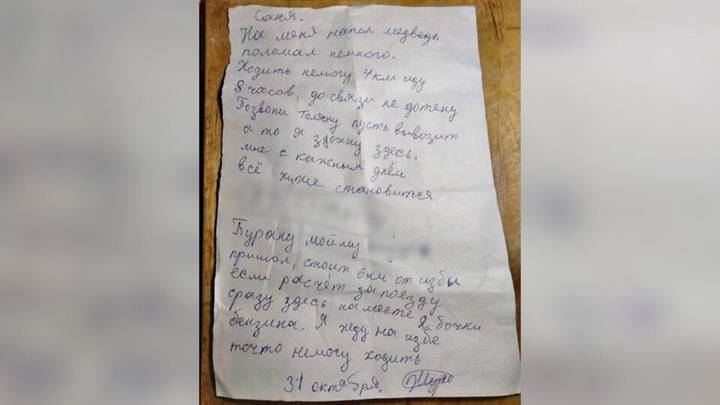 Саня.
На меня напал медведь
поломал немного.
Ходить немогу 4 км иду
8 часов, до связи не дотяну
Позвони Толяну пусть вывозит
а то я здохну здесь.
мне с каждым днём
всё хуже становится
Бурану моему
пришол, стоит 6 км от избы
если расчёт за поездку
сразу здесь на месте 2 бочки
бензина. Я жду на избе
точто немогу ходить
31 октября.